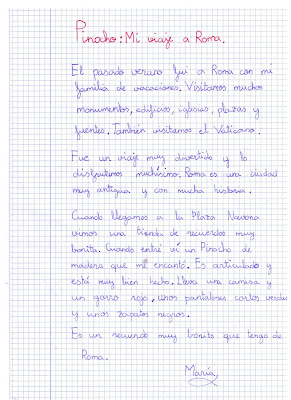 Pinocho: Mi viaje a Roma.
El pasado verano fui a Roma con mi
familia de vacaciones. Visitamos muchos
monumentos, edificios, iglesias, plazas y
fuentes. También visitamos el Vaticano.
Fue un viaje muy divertido y lo
disfrutamos muchísimo. Roma es una ciudad
muy antigua y con mucha historia.
Cuando llegamos a la Plaza Navona
vimos una tienda de recuerdos muy
bonita. Cuando entré vi un Pinocho de
madera que me encantó. Es articulado y
está muy bien hecho. Lleva una camisa y
un gorro rojo, unos pantalones cortos verdes
y unos zapatos negros.
Es un recuerdo muy bonito que tengo de
Roma.
María